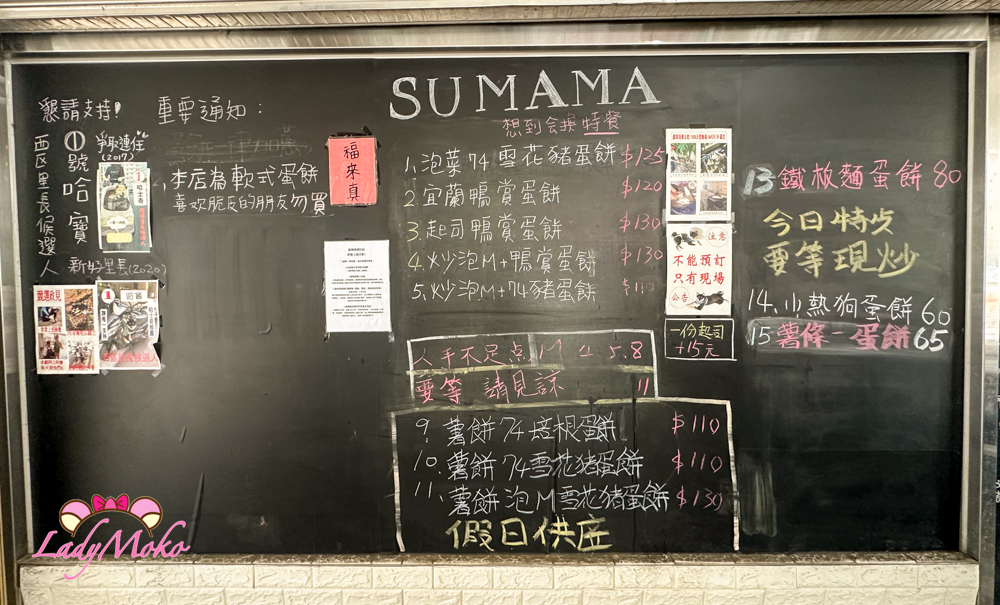 懇請支持!
西区里長候選人
①號哈寶
爭取連任
(2017)
新好里長(2020)
哈士奇
競選政見
1
重要通知:
本店為軟式蛋餅
喜欢脆皮的朋友勿買
福來真
SUMAMA
想到会換特餐
1.泡菜74雪花豬蛋餅 $125
2.宜蘭鴨賞蛋餅 $120
3.起司鴨賞蛋餅 $130
4.火少泡M+鴨賞蛋餅 $130
5.火少泡M+74豬蛋餅 $110
人手不足点 1 4 4.5.8
要等 請見諒 11
9.薯餅74培根蛋餅 $110
10.薯餅74雪花猪蛋餅 $110
11.薯餅泡M雪花猪蛋餅 $130
假日供应
注意
不能預訂
只有現場
公告
一份起司
+15元
13鐵板麵蛋餅 80
今日特点
要等現炒
14.小熱狗蛋餅 60
15薯條-蛋餅 65
LadyMoko